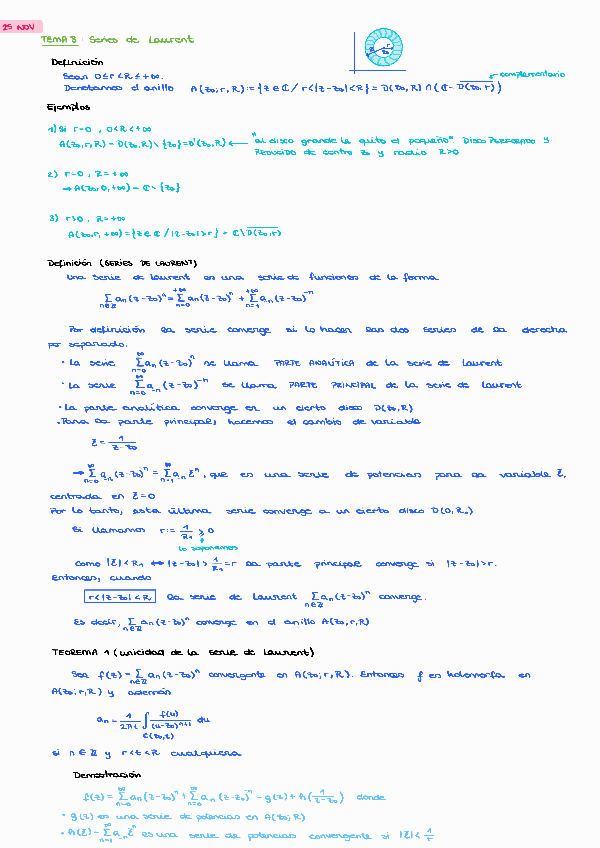 25 NOV
TEMA 8: Series de Laurent
Definición
Sean 0≤r<R≤+∞.
complementario
Denotamos el anillo A(z₀;r,R):={z∈ℂ/ r<|z-z₀|<R} = D(z₀,R) ∩ (ℂ - D(z₀,r))
Ejemplos
1) Si r=0, 0<R<+∞
A(z₀,r,R) = D(z₀,R)\{z₀}=D'(z₀,R) ← "al disco grande le quito el pequeño" DISCO PERFORADO Y
REDUCIDO de centro z₀ y radio R>0
2) r=0, R=+∞
→ A(z₀,0,+∞) = ℂ\{z₀}
3) r>0, R=+∞
A(z₀,r,+∞)={z∈ℂ/|z-z₀|>r} = ℂ\D(z₀,r)
Definición (SERIES DE LAURENT)
Una serie de Laurent es una serie de funciones de la forma
∑ aₙ(z-z₀)ⁿ = ∑ aₙ(z-z₀)ⁿ + ∑ a₋ₙ(z-z₀)⁻ⁿ
Por definición la serie converge si lo hacen las dos series de la derecha
por separado.
· La serie ∑ aₙ(z-z₀)ⁿ se llama PARTE ANALÍTICA de la serie de Laurent
· La serie ∑ a₋ₙ(z-z₀)⁻ⁿ se llama PARTE PRINCIPAL de la serie de Laurent
· La parte analítica converge en un cierto disco D(z₀,R)
· Para la parte principal, hacemos el cambio de variable
ξ = 1/(z-z₀)
→ ∑ a₋ₙ(z-z₀)⁻ⁿ = ∑ a₋ₙ ξⁿ, que es una serie de potencias para la variable ξ,
centrada en ξ=0
Por lo tanto, esta última serie converge a un cierto disco D(0,R₁)
Si llamamos r := 1/R₁ ≥ 0
lo suponemos
Como |ξ|<R₁ ⟷ |z-z₀| > 1/R₁ = r la parte principal converge si |z-z₀|>r.
Entonces, cuando
r<|z-z₀|<R la serie de Laurent ∑ aₙ(z-z₀)ⁿ converge.
Es decir, ∑ aₙ(z-z₀)ⁿ converge en el anillo A(z₀;r,R)
TEOREMA 1 (unicidad de la serie de Laurent)
Sea f(z) = ∑ aₙ(z-z₀)ⁿ convergente en A(z₀;r,R). Entonces f es holomorfa en
A(z₀;r,R) y además
aₙ = 1/2πi ∫ f(u)/(u-z₀)ⁿ⁺¹ du
C(z₀,t)
si n∈ℤ y r<t<R cualquiera
Demostración
f(z) = ∑ aₙ(z-z₀)ⁿ + ∑ a₋ₙ(z-z₀)⁻ⁿ = g(z) + h(1/(z-z₀)) donde
· g(z) es una serie de potencias en A(z₀;R)
· h(ξ) = ∑ a₋ₙ ξⁿ es una serie de potencias convergente si |ξ|< 1/r